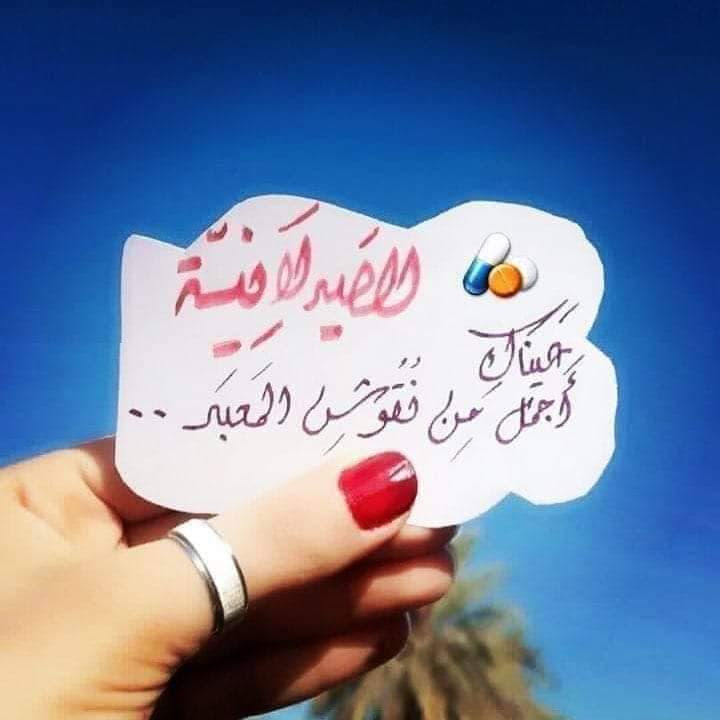 الصَيدلَانِيّة
عَينَاكِ
أَجمَلُ مِن نُقُوشِ المَعبَد ..